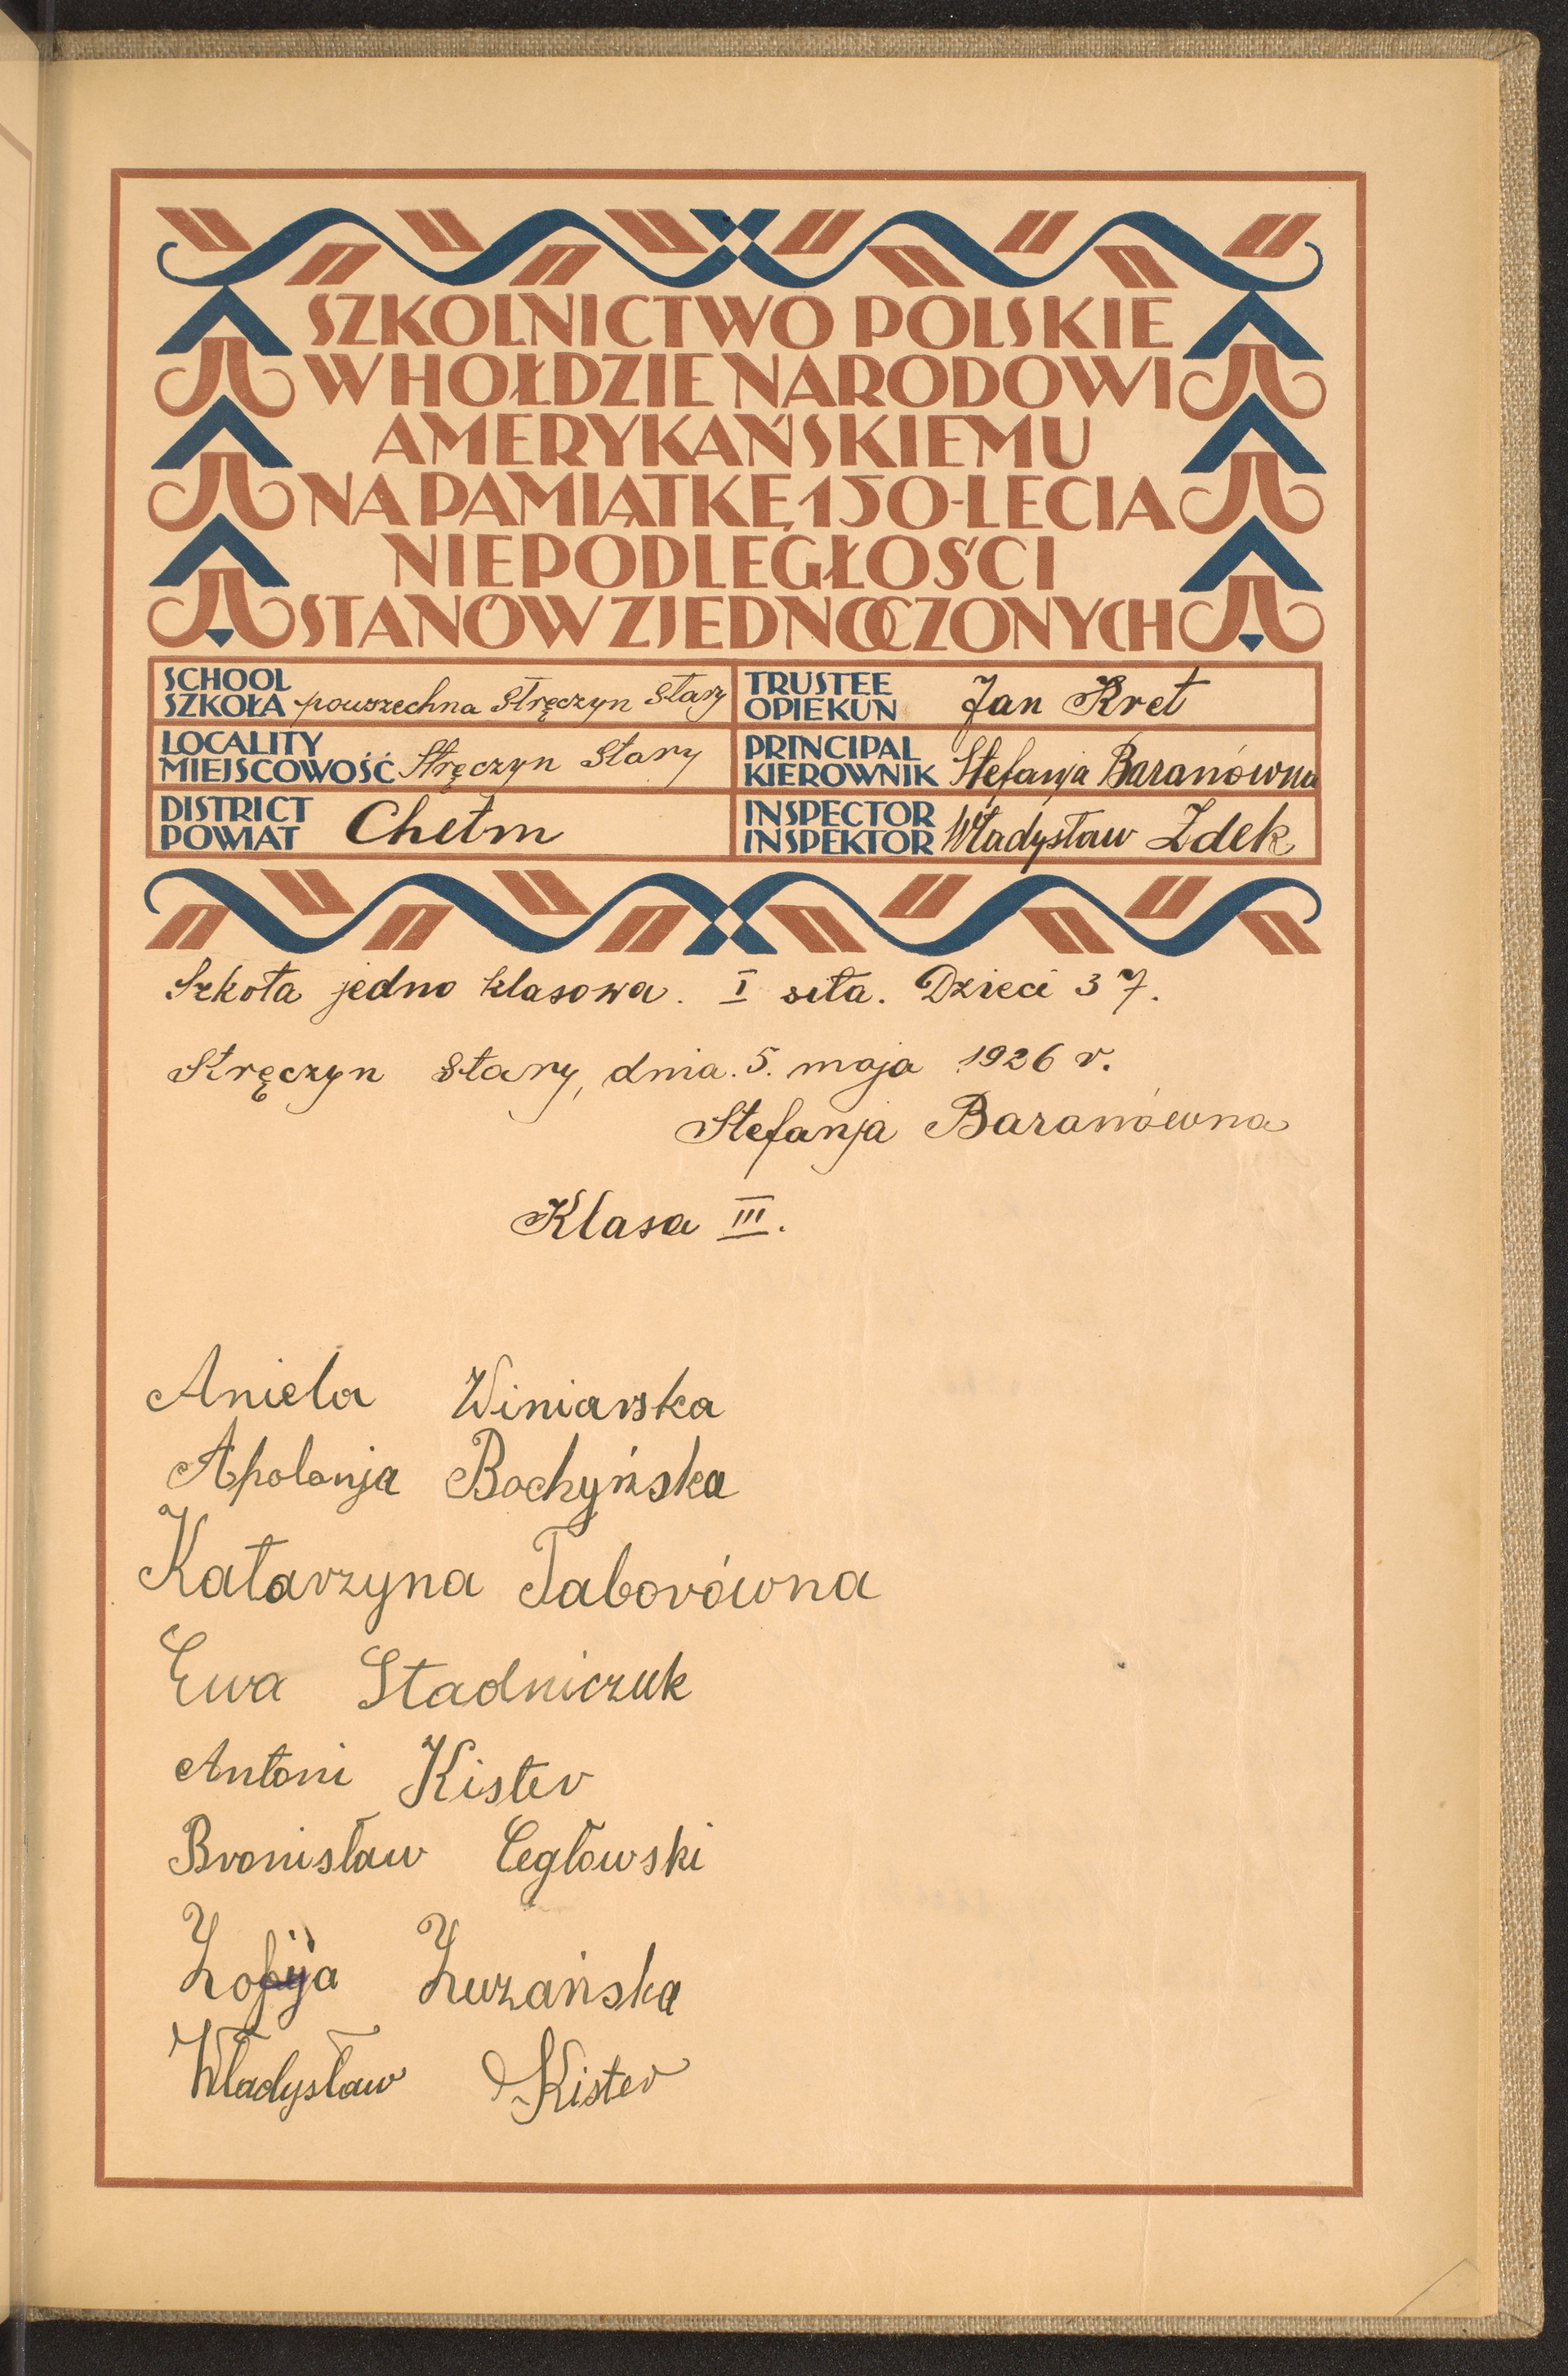 SZKOLNICTWO POLSKIE
W HOŁDZIE NARODOWI
AMERYKAŃSKIEMU
NA PAMIĄTKĘ 150-LECIA
NIEPODLEGŁOŚCI
STANÓW ZJEDNOCZONYCH
SCHOOL
SZKOŁA powszechna Stręczyn Stary
LOCALITY
MIEJSCOWOŚĆ Stręczyn Stary
DISTRICT
POWIAT Chełm
TRUSTEE
OPIEKUN Jan Kret
PRINCIPAL
KIEROWNIK Stefanja Baranówna
INSPECTOR
INSPEKTOR Władysław Zdek
Szkoła jedno klasowa. I siła. Dzieci 37.
Stręczyn Stary, dnia. 5. maja 1926 r.
Stefanja Baranówna
Klasa III.
Aniela Winiarska
Apolonja Bochyńska
Katarzyna Taborówna
Ewa Stadniczuk
Antoni Kister
Bronisław Cegłowski
Zofija Zuzańska
Władysław Kister